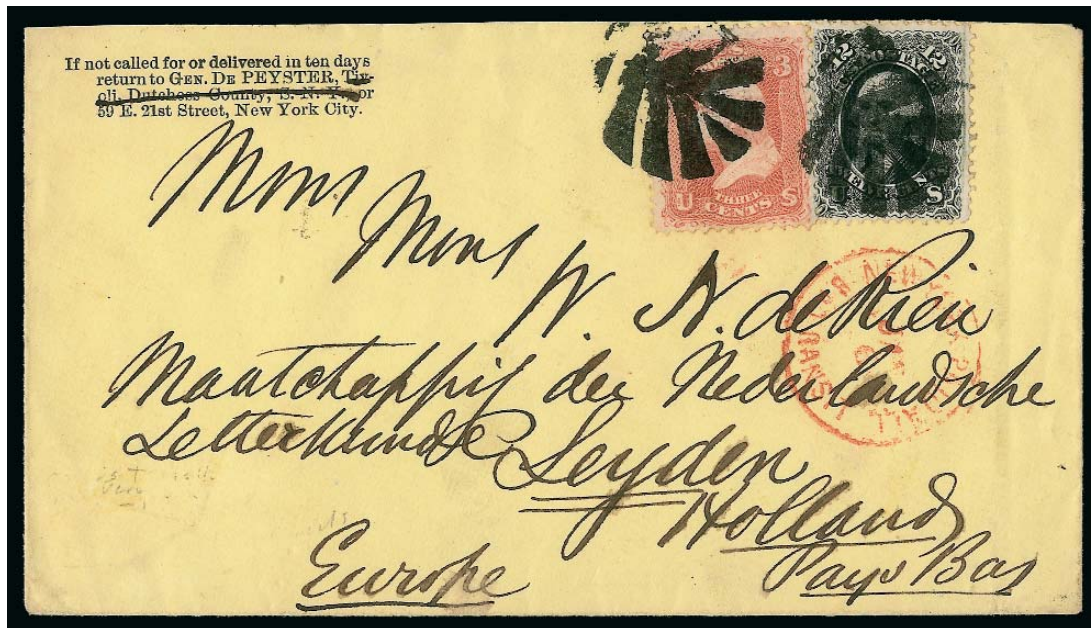 If not called for or delivered in ten days
return to GEN. DE PEYSTER, Tiv-
oli, Dutchess County, S. N. Y., or
59 E. 21st Street, New York City.
U 3
THREE
CENTS
U S
12 12
U S
Mons
Mons W. N. de Rieu
Maatchappij der Nederlandsche
Letterkunde
Leyden
Holland
Europe Pays Bas
NEW YORK